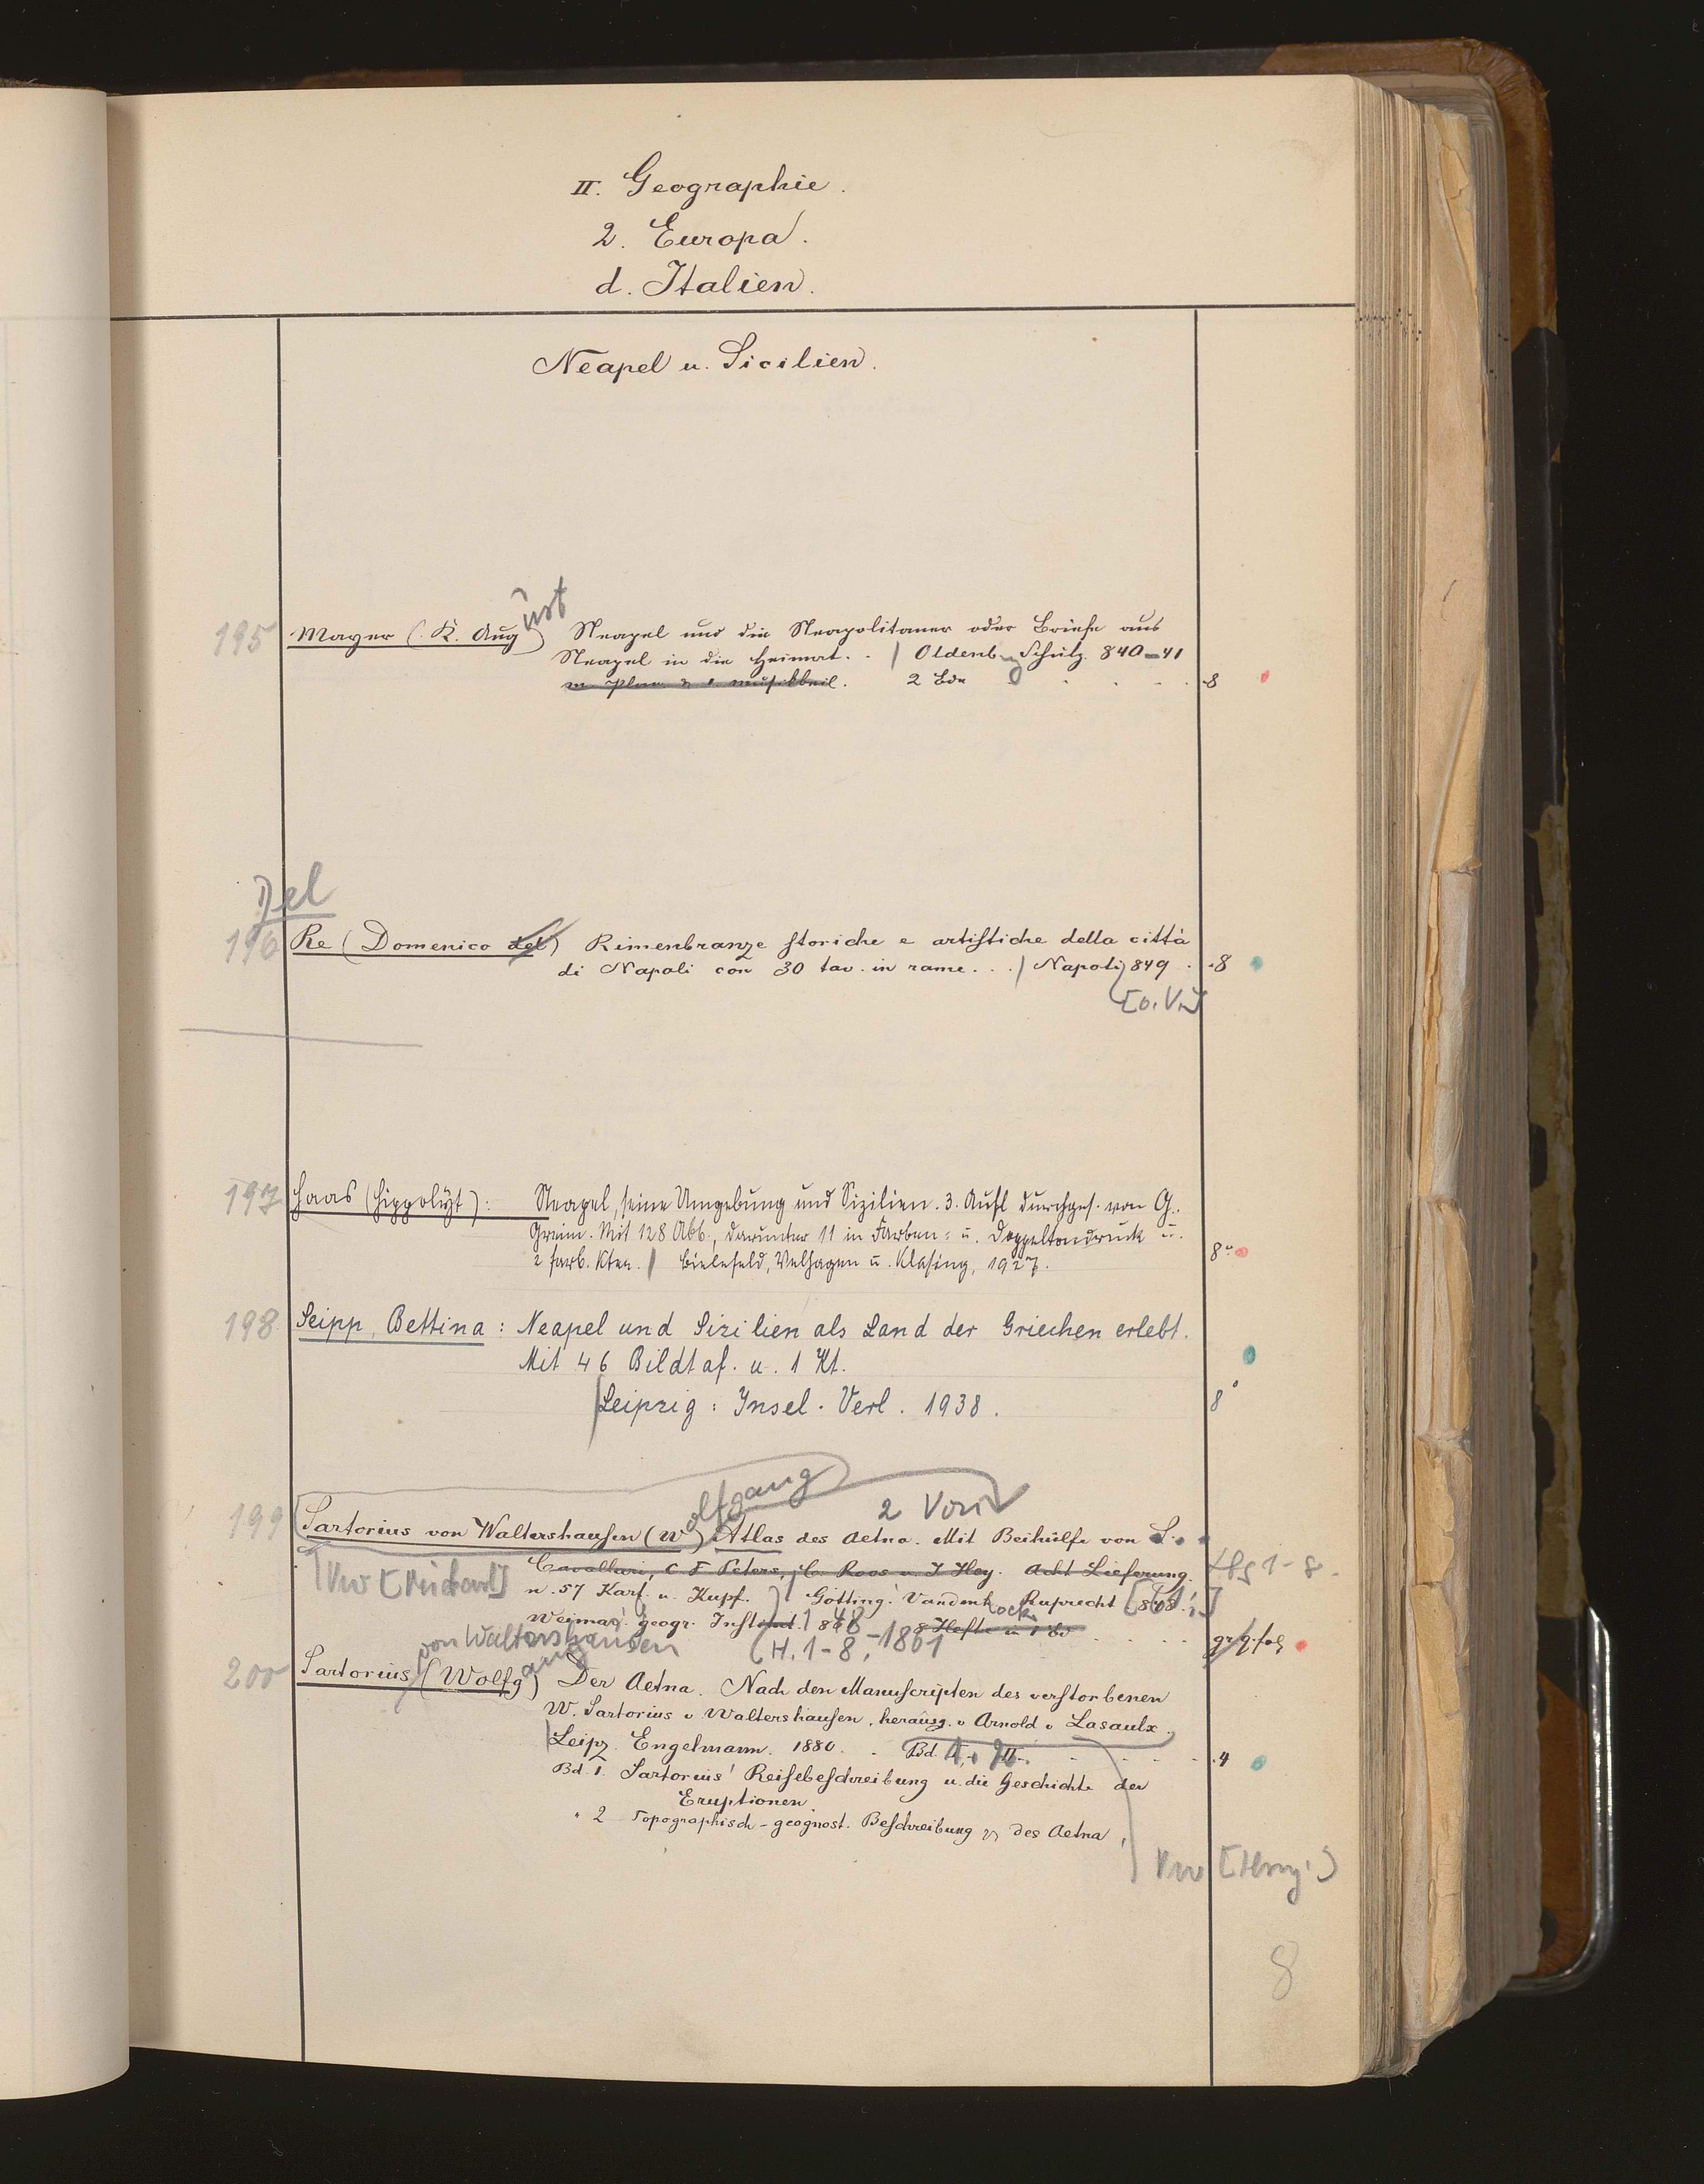 II. Geographie.
2. Europa.
d. Italien.
Neapel u. Sicilien.
195 Mayer (K. August) Neapel und die Neapolitaner oder Briefe aus
Neapel in die Heimat. . | Oldenb Schulz. 840-41
m. Plan 2 Bde . . . . 8
Del
196 Re (Domenico del) Rimenbranze storiche e artistiche della città
di Napoli con 30 tav. in rame. . . | Napoli 849 . . 8
[o. V.]
197 Haas (Hippolyt): Neapel, seine Umgebung und Sizilien. 3. Aufl durchges. von G.
Grimm. Mit 128 Abb., darunter 11 in Farben= u. Doppeltondruck u.
2 farb. Ktn. | Bielefeld, Velhagen u. Klasing, 1927. 8°
198 Seipp, Bettina: Neapel und Sizilien als Land der Griechen erlebt.
Mit 46 Bildtaf. u. 1 Kt.
|Leipzig: Insel-Verl. 1938. 8°
olfgang
2 Verw
199 Sartorius von Waltershausen (W) Atlas des Aetna. Mit Beihülfe von S.
Cavallari, C F Peters, C. Roos u. I Hey. Acht Lieferung. Lfg 1-8.
n. 57 Kart. u. Kupf. Götting. Vandenh ock Ruprecht 848
Weimar geogr. Institut. 1848 8 Hefte in 1 Bd . . . . gr. q. fol
von Waltershausen (H. 1-8, -1861
200 Sartorius (Wolfgang) Der Aetna. Nach den Manuscripten des verstorbenen
W. Sartorius v Waltershausen, herausg. v Arnold v Lasaulx.
|Leipz. Engelmann. 1880. . Bd. I, II. . . . . 4
Bd. 1. Sartorius' Reisebeschreibung u. die Geschichte der
Eruptionen.
" 2 Topographisch-geognost. Beschreibung des Aetna,
Vw
8